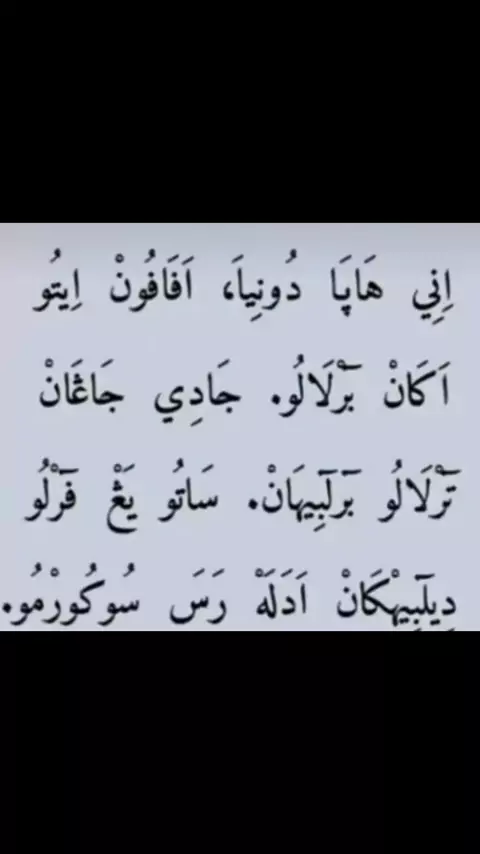 اِنِي هَاپَا دُونِياَ، اَفَافُونْ اِيتُو
اَكَانْ بٓرْلَالُو. جَادِي جَاڠَانْ
تٓرْلَالُو بٓرْلٓبِيهَانْ. سَاتُو يَڠْ فٓرْلُو
دِيلٓبِيهْكَانْ اَدَلَهْ رَسَ سُوكُورْمُو.